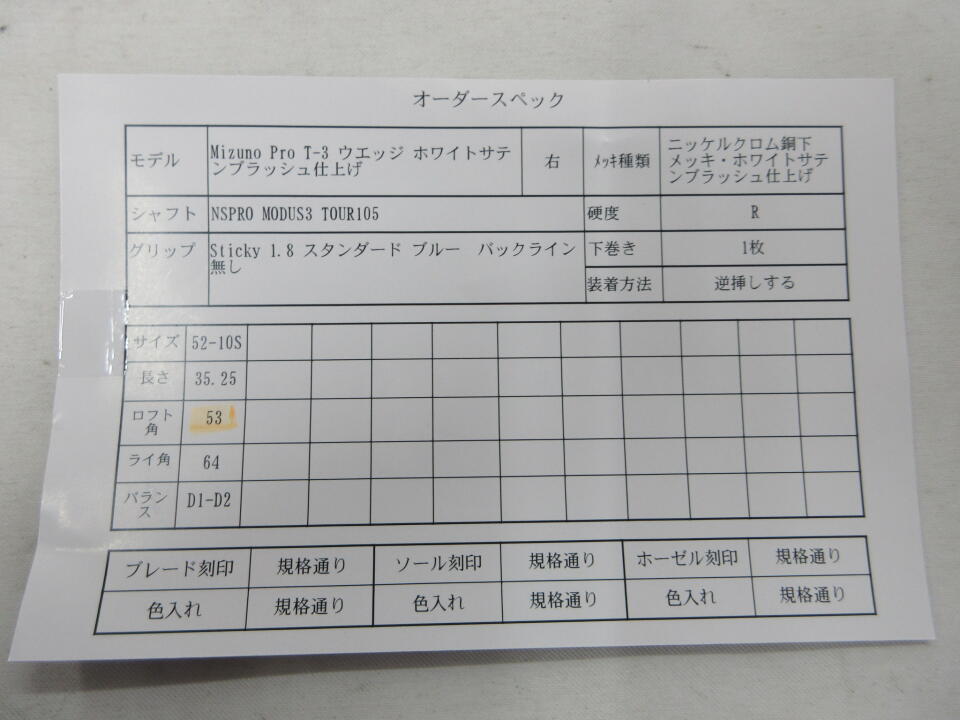 オーダースペック
モデル
Mizuno Pro T-3 ウエッジ ホワイトサテ
ンブラッシュ仕上げ
右
ﾒｯｷ種類
ニッケルクロム銅下
メッキ・ホワイトサテ
ンブラッシュ仕上げ
シャフト NSPRO MODUS3 TOUR105 硬度 R
グリップ
Sticky 1.8 スタンダード ブルー　バックライン
無し
下巻き 1枚
装着方法 逆挿しする
サイズ 52-10S
長さ 35.25
ロフト
角
53
ライ角 64
バラン
ス
D1-D2
ブレード刻印 規格通り ソール刻印 規格通り ホーゼル刻印 規格通り
色入れ 規格通り 色入れ 規格通り 色入れ 規格通り